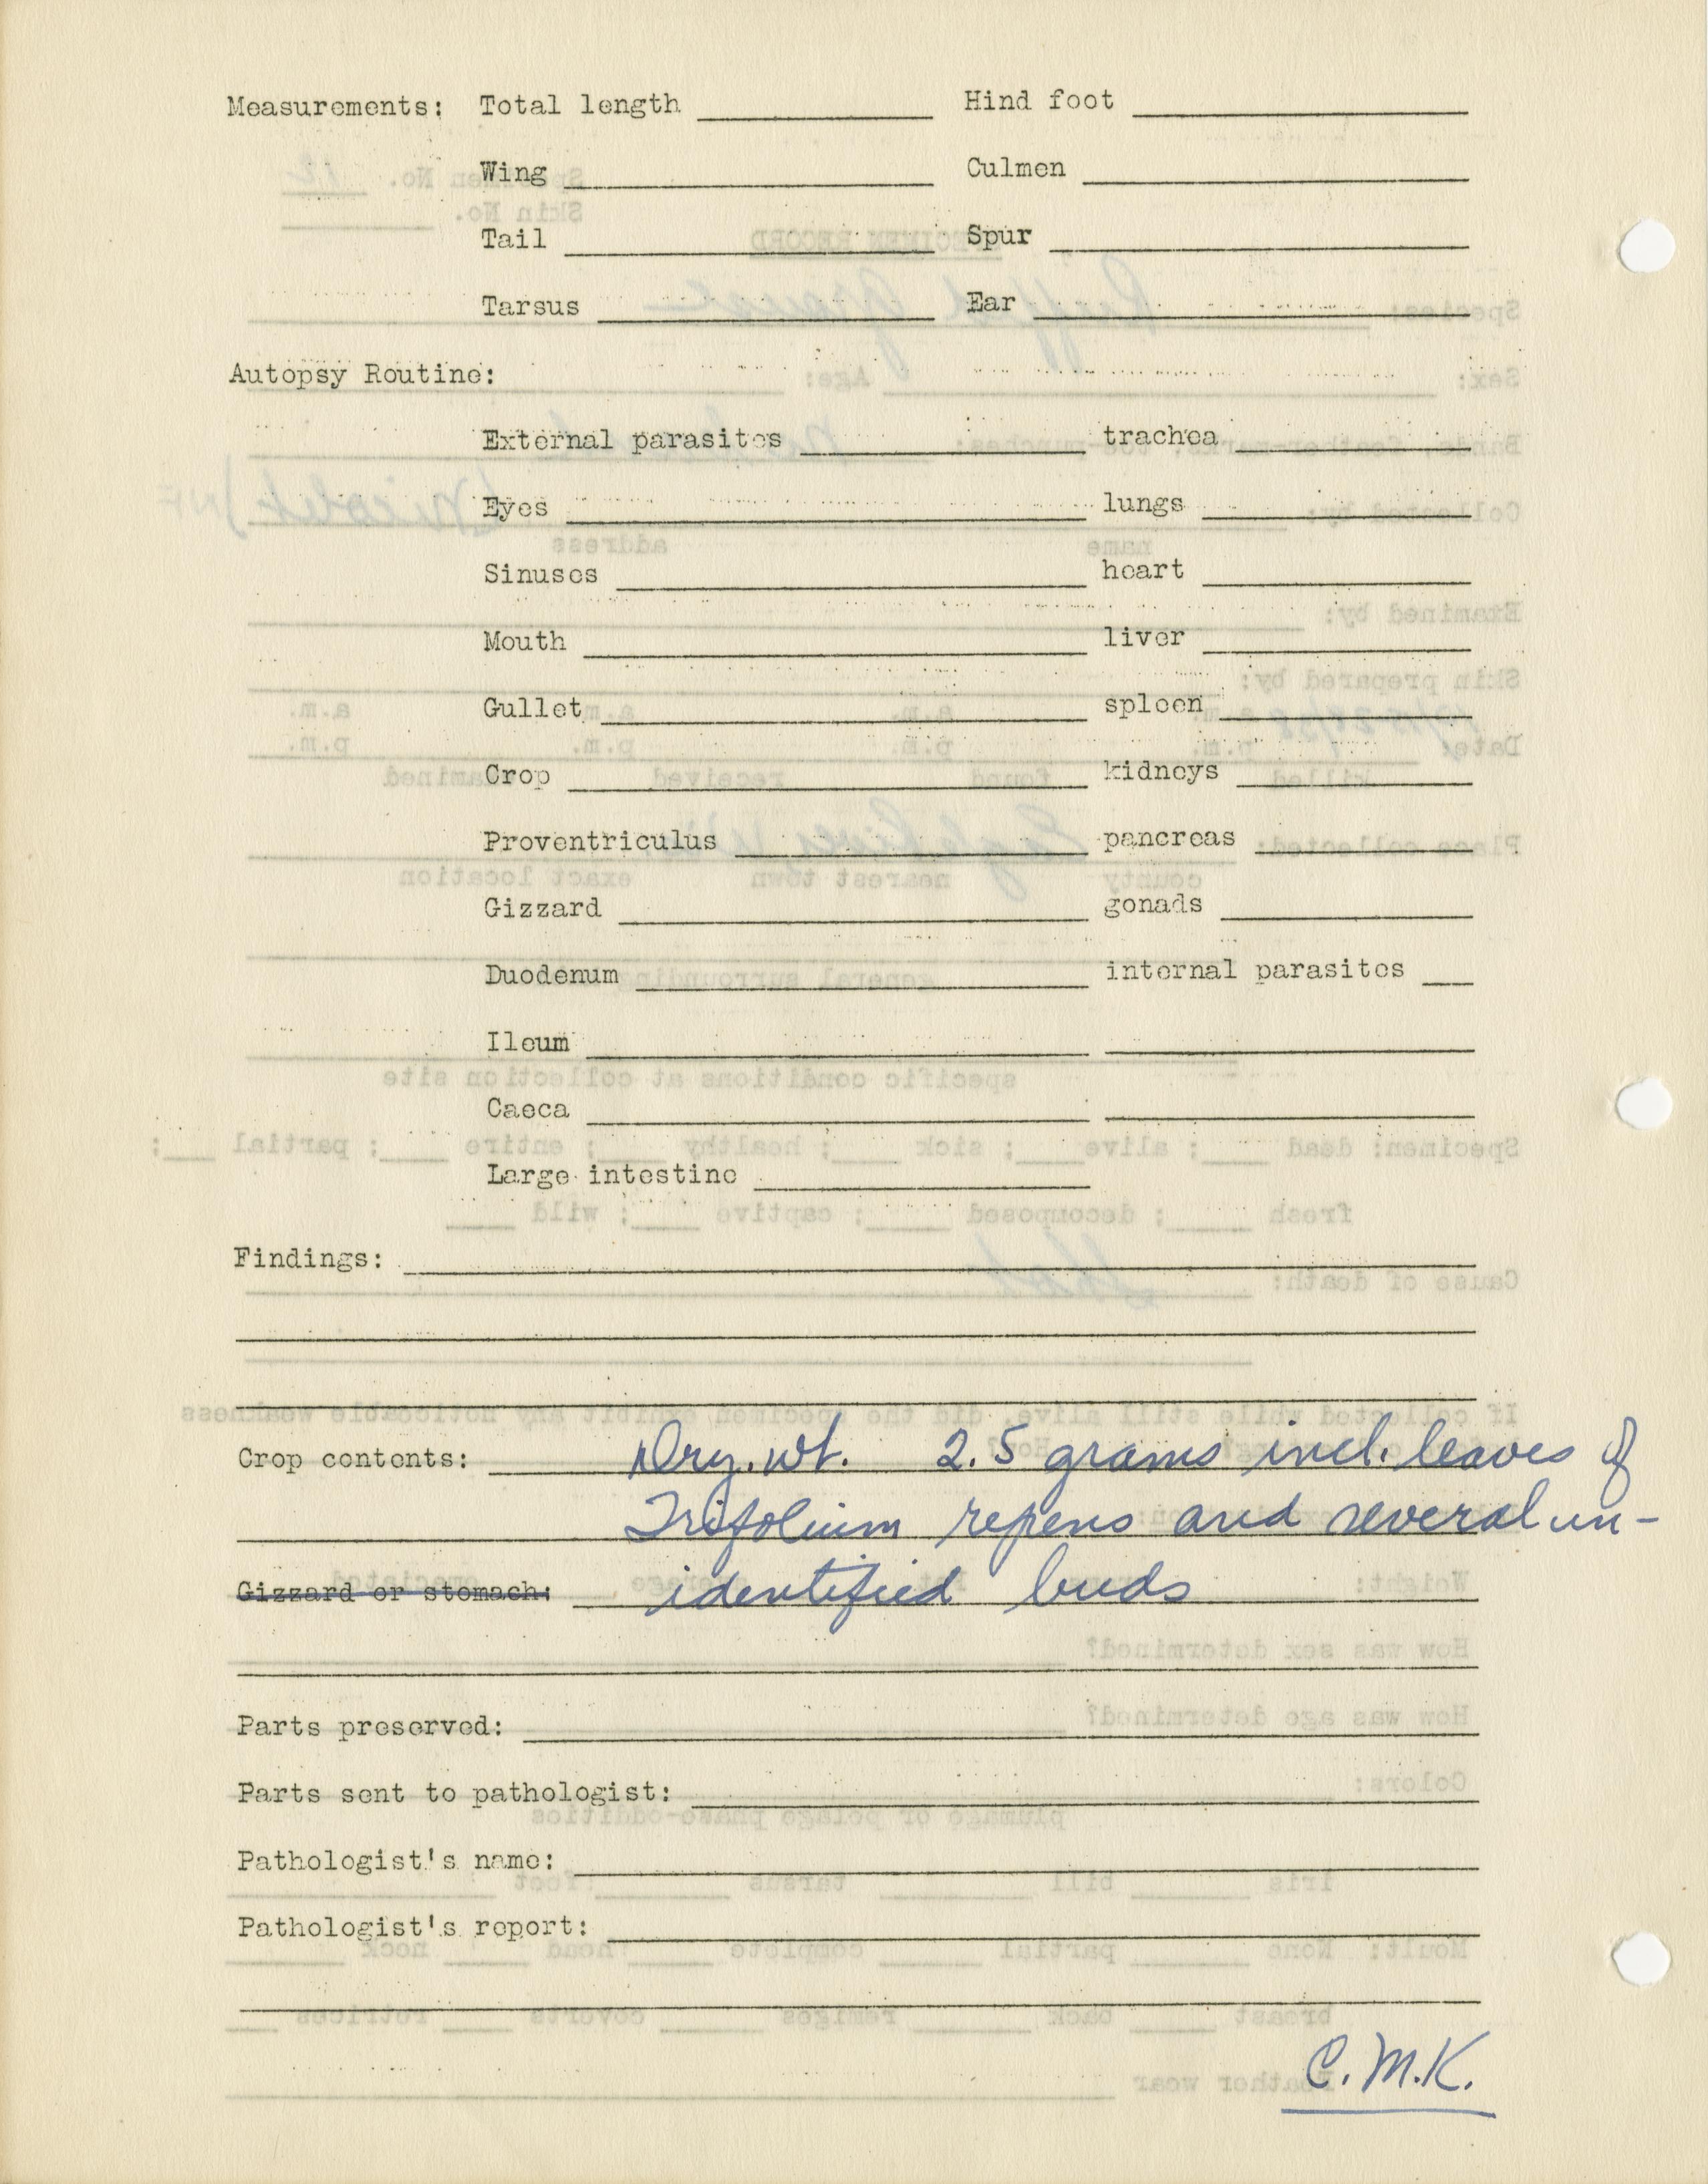 Measurements: Total length Hind foot
Wing Culmen
Tail Spur
Tarsus Ear
Autopsy Routine:
External parasites trachea
Eyes lungs
Sinuses heart
Mouth liver
Gullet spleen
Crop kidneys
Proventriculus pancreas
Gizzard gonads
Duodenum internal parasites
Ileum
Caeca
Large intestine
Findings:
Crop contents: Dry. wt. 2.5 grams incl. leaves of
Trifolium repens and several un-
Gizzard or stomach: identified buds
Parts preserved:
Parts sent to pathologist:
Pathologist's name:
Pathologist's report:
C.M.K.